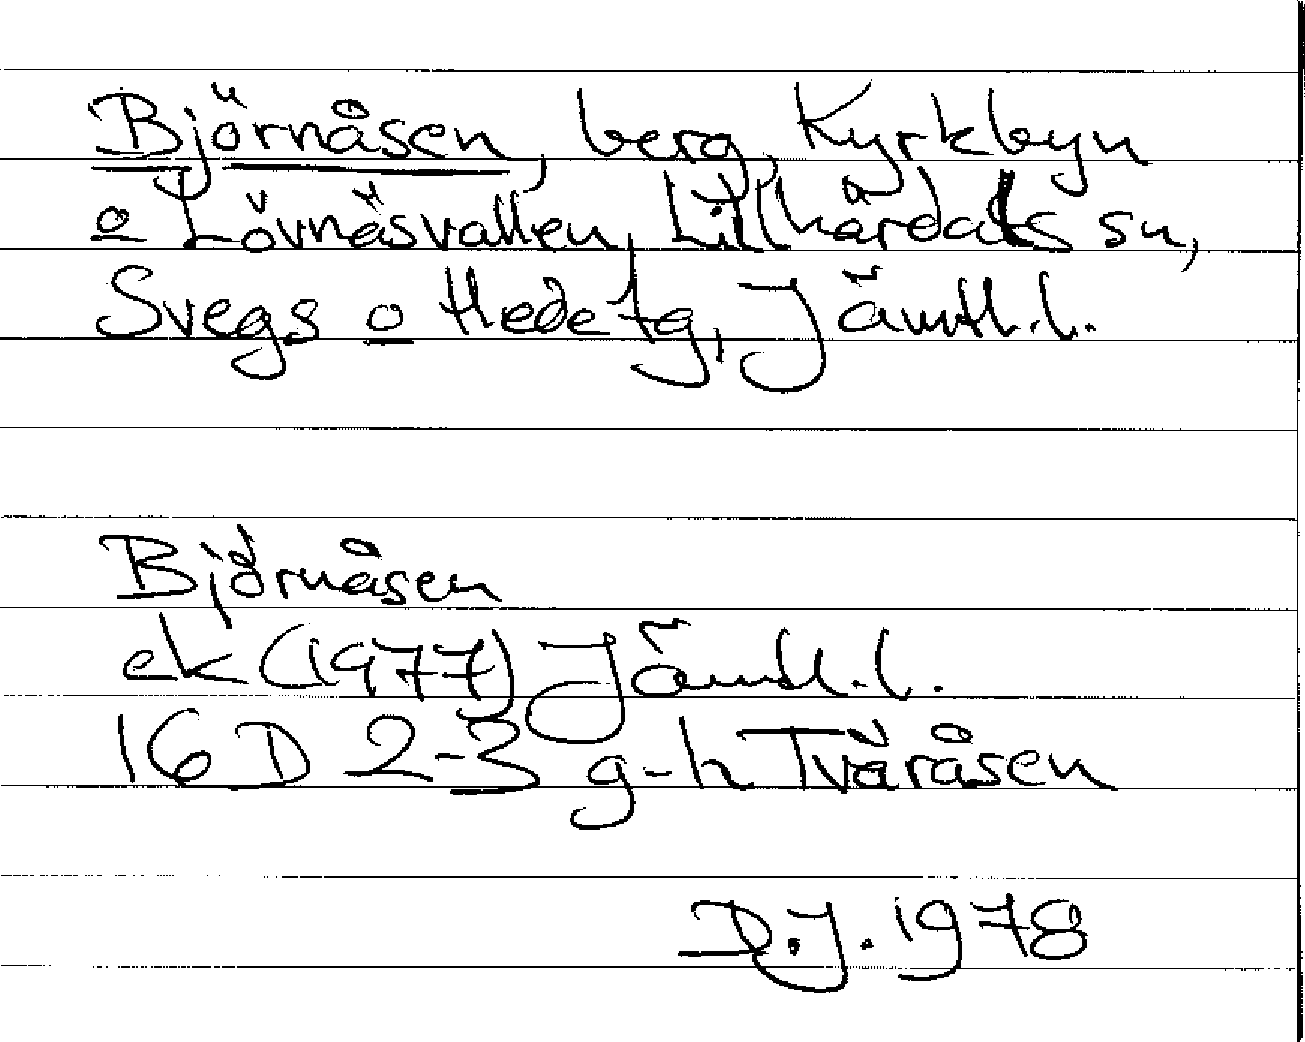 Björnåsen, berg, Kyrkbyn
o Lövnäsvallen, Lillhärdals sn,
Svegs o Hede tg, Jämtl.l.
Björnåsen
ek (1977) Jämtl.l.
16 D 2-3 g-h Tväråsen
D.J. 1978